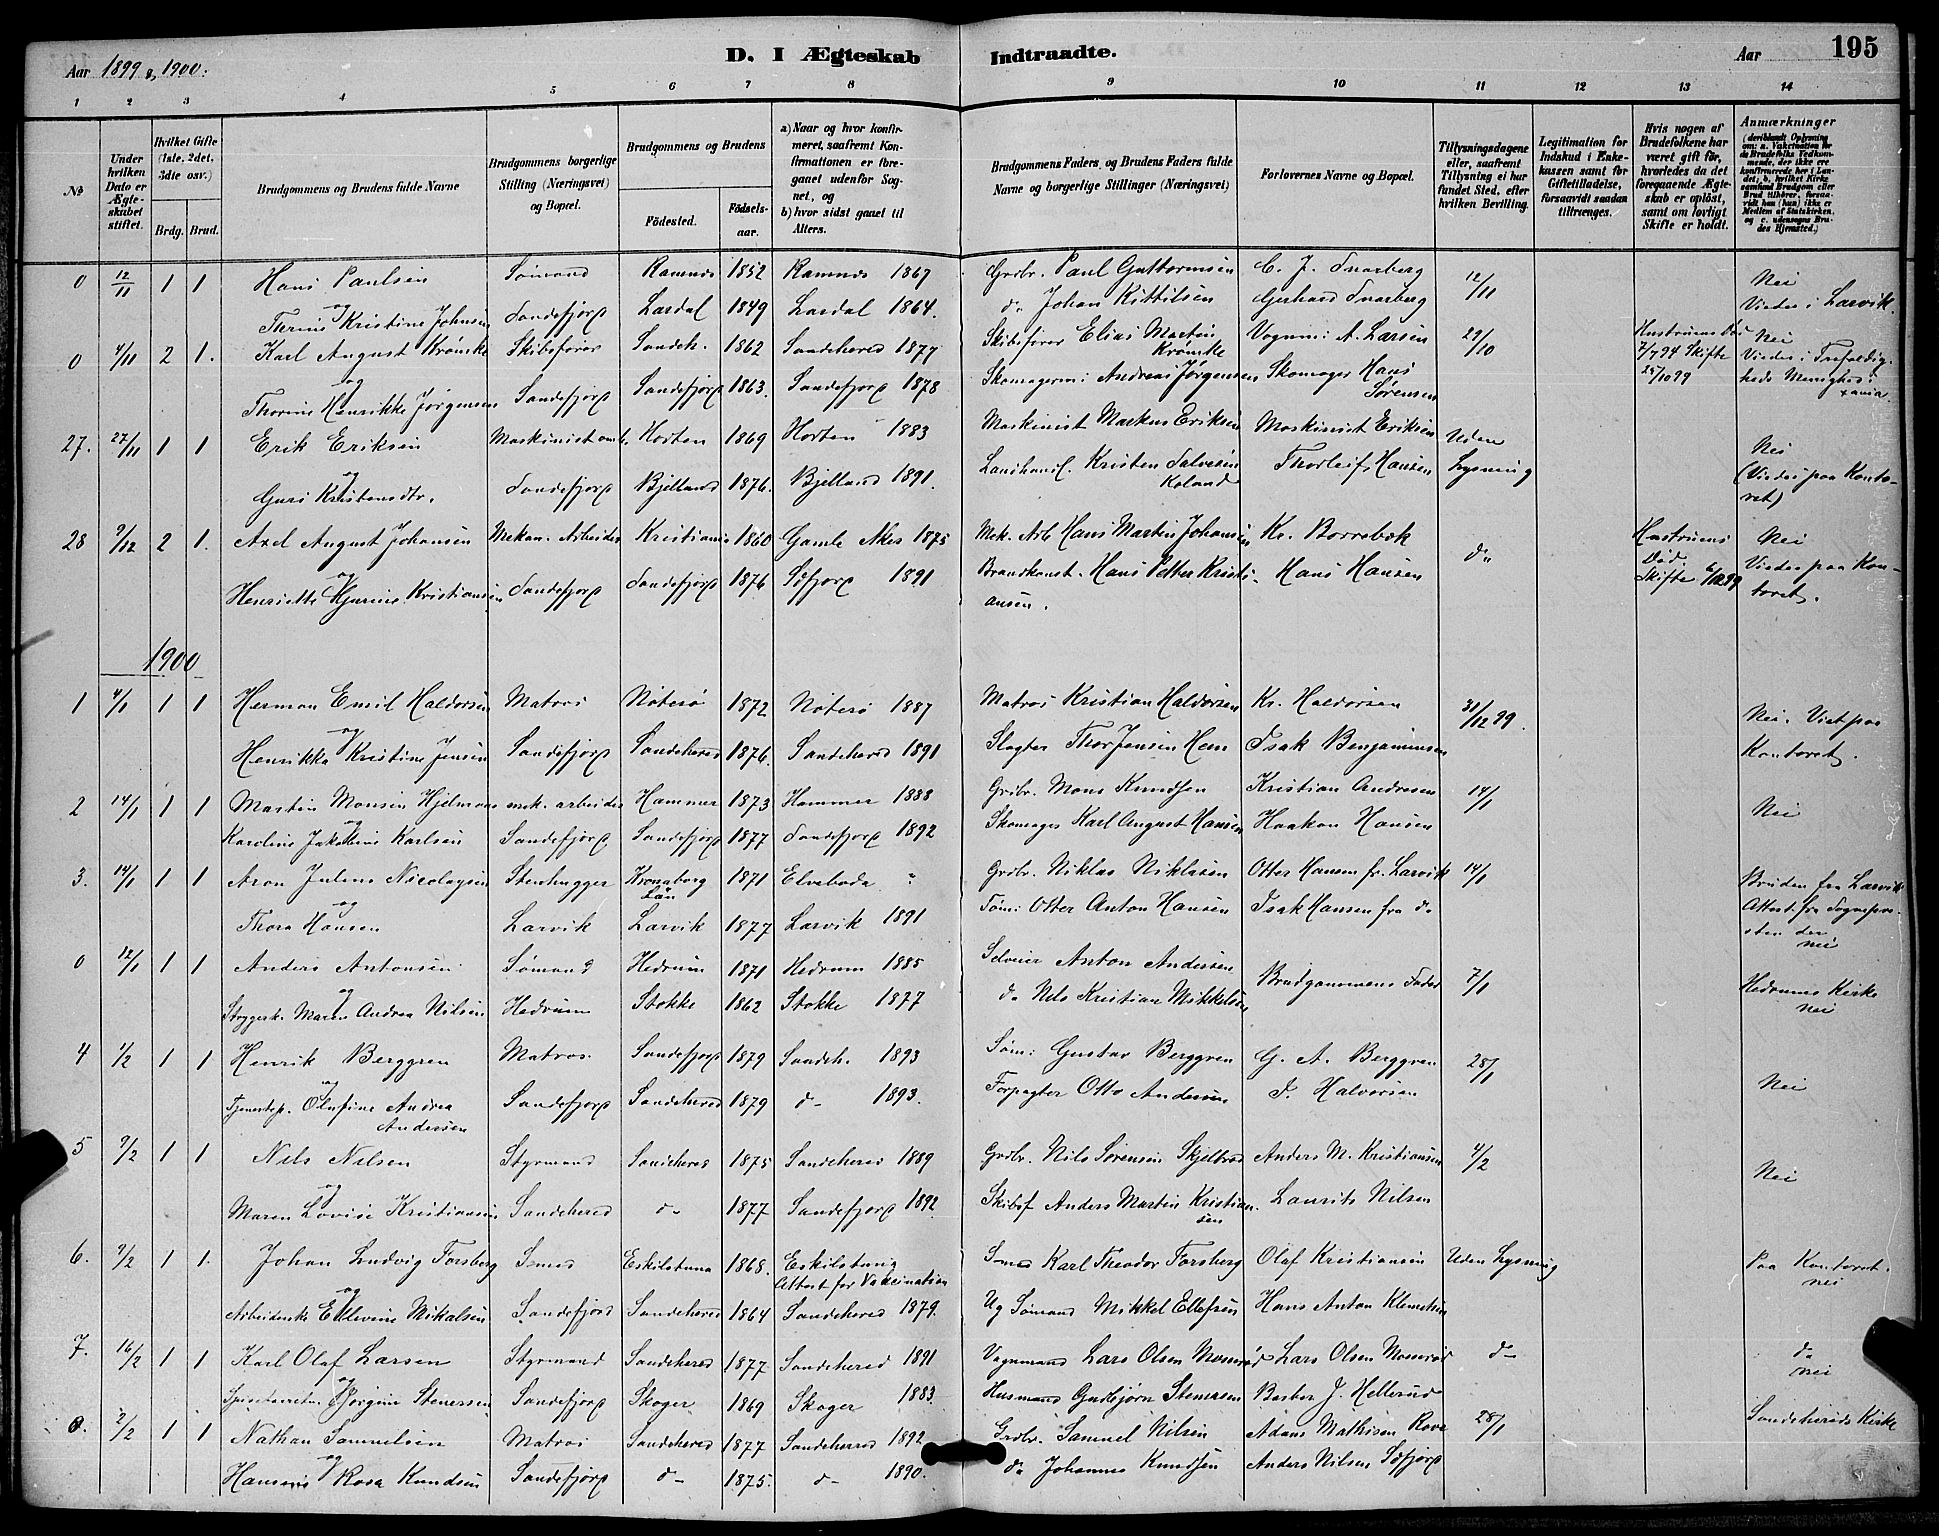 Aar 1899 & 1900. D. I Ægteskab Indtraadte. Aar 195
1 2 3 4 5 6 7 8 9 10 11 12 13 14
No
Under hvilken Dato er Ægteskabet stiftet.
Hvilket Gifte (1ste, 2det, 3die osv.)
Brdg. Brud.
Brudgommens og Brudens fulde Navne
Brudgommens borgerlige Stilling (Næringsvei) og Bopæl.
Brudgommens og Brudens
Fødested. Fødselsaar.
a) Naar og hvor konfirmeret, saafremt Konfirmationen er foregaaet udenfor Sognet, og
b) hvor sidst gaaet til Alters.
Brudgommens Faders og Brudens Faders fulde Navne og borgerlige Stillinger (Næringsvei)
Forlovernes Navne og Bopæl.
Tillysningsdagene eller, saafremt Tillysning ei har fundet Sted, efter hvilken Bevilling.
Legitimation for Indskud i Enkekassen samt for Giftetilladelse, forsaavidt saadan tiltrænges.
Hvis nogen af Brudefolkene har været gift før, hvorledes da det foregaaende Ægteskab er opløst, samt om lovligt Skifte er holdt.
Anmærkninger
0 12/11 1 1 Hans Paulsen Sømand Ramnes 1852 Ramnes 1867 Grdbr. Paul Guttormsen C. J. Tvarberg 12/11 Nei
og Kristine Johnsen Sandefjord Lardal 1849 Lardal 1864. do Johan Kittilsen Gerhard Tvarberg Viedes i Larvik.
0 4/11 2 1. Karl August Krømke Skibsfører Sandeh. 1862 Sandeherred 1877 Skibsfører Elias Martin Krømke Vognm: A. Larsen 29/10 Hustruens Død 7/7 94 Skifte 25/10 99 Nei
og Thorine Henrikke Jørgensen Sandefjord Sandefjord 1863. Sandefjord 1878 Skomagerm: Andreas Jørgensen Skomager Hans Sørensen Viedes i Trefoldigheds Menighed i Xania.
27. 27/11 1 1 Erik Eriksen Maskinist Horten 1869 Horten 1883 Maskinist Markus Eriksen Maskinist Eriksen Uden Lysning Nei
og Guri Kristensdtr. Sandefjord Bjelland 1876. Bjelland 1891. Landhandl. Kristen Salvesen Koland Thorleif Hansen (Viedes paa Kontoret)
28 9/12 2 1. Axel August Johansen Mekan. Arbeider Kristiania 1860 Gamle Aker 1875 Mek. Arb Hans Martin Johansen Kr. Borrebæk do Hustruens Død. Skifte 99 Nei
og Henriette Hjerine Kristiansen Sandefjord Sandefjord 1876 Sefjord 1891 Brandkonst. Hans Petter Kristiansen. Hans Hansen Viedes paa Kontoret.
1900
1 4/1 1 1 Herman Emil Haldorsen Matros Nøterø 1872 Nøterø 1887 Matros Kristian Haldorsen Kr. Haldorsen 31/12 99. Nei. Viet paa Kontoret.
og Henrikka Kristine Jensen Sandefjord Sandeherred 1876. Sandeherred 1891 Slagter Thor Jensen Hem Isak Benjaminsen
2 14/1 1 1 Martin Monsen Hjelmaas mek. arbeider Hammer 1873 Hammer 1888 Grdbr. Mons Knudsen Kristian Andresen 14/1 Nei
og Karoline Jakobine Karlsen Sandefjord Sandefjord 1877 Sandefjord 1892 Skomager Karl August Hansen Haakon Hansen
3. 14/1 1 1 Aron Julius Nicolaysen Stenhugger Kronoborg Län 1871 Elveboda " Grdbr. Niklas Niklasen Otter Hansen fr. Larvik 14/1 Bruden fra Larvik
og Thora Hansen Larvik Larvik 1877 Larvik 1891 Tøm: Otter Anton Hansen Isak Hansen fra do Attest fra Sognepresten der nei
0 12/1 1 1 Anders Antonsen Sømand Hedrum 1871 Hedrum 1885 Selveier Anton Andersen Brudgommens Fader 7/1 Hedrums Kirke nei
og Strygersk. Maren Andrea Nilsen Hedrum Stokke 1862 Stokke 1877 do Nils Kristian Mikkelsen
4 1/2 1 1 Henrik Berggren Matros. Sandefjord 1879 Sandeh. 1893 Søm: Gustav Berggren G. A. Berggren 28/1 Nei
og Tjenestep. Olufine Andrea Andersen Sandefjord Sandeherred 1879 do 1893. Forpagter Otto Andersen I. Halvorsen
5 9/2 1 1 Nils Nilsen Styrmand Sandeherred 1875 Sandeherred 1889 Grdbr. Nils Sørensen Skjelbred Anders M. Kristiansen 4/2 Nei
og Maren Lovise Kristiansen Sandeherred do 1877 Sandefjord 1892 Skibsf Anders Martin Kristiansen Laurits Nilsen
6. 9/2 1 1. Johan Ludvig Forsberg Smed Eskilstuna 1868. Eskilstuna Attest for Vakcination Smed Karl Theodor Forsberg Olaf Kristiansen Uden Lysning Paa Kontoret. nei
og Arbeiderske Ellevine Mikalsen Sandefjord Sandeherred 1864 Sandeherred 1879. Ug Sømand Mikkel Ellefsen Hans Anton Klemetsen
7. 16/2 1 1 Karl Olaf Larsen Styrmand Sandeherred 1877 Sandeherred 1891 Vognmand Lars Olsen Momrød Lars Olsen Momrød do do nei
og Jørgine Stenersen Sandefjord Skoger 1869 Skoger 1883 Husmand Gudbjørn Stenersen Barber J. Hellerud
0. 2/2 1 1 Nathan Samuelsen Matros Sandeherred 1877 Sandeherred 1892 Grdbr. Samuel Nilsen Adam Mathisen Rove 28/1 Sandeherreds Kirke
og Rosa Knudsen Sandefjord do 1875. do 1890. do Johannes Knudsen Anders Nilsen Sefjord